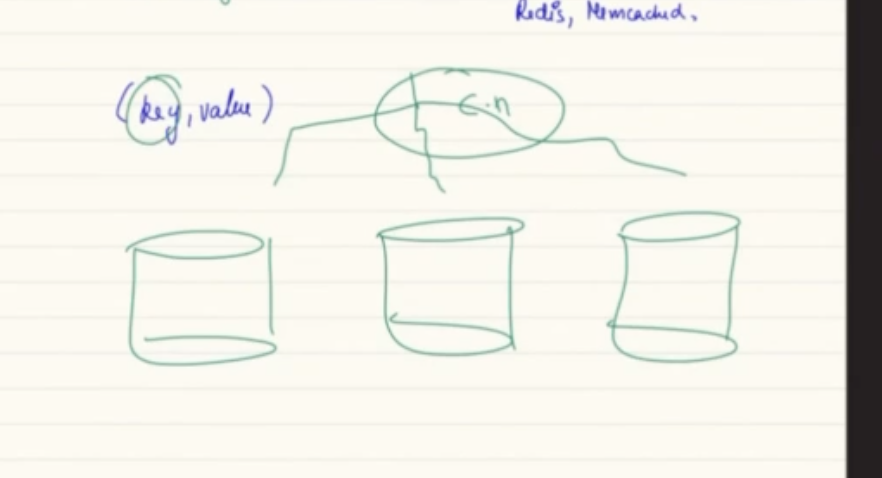 Redis, Memcached.
(key, value)
C.n